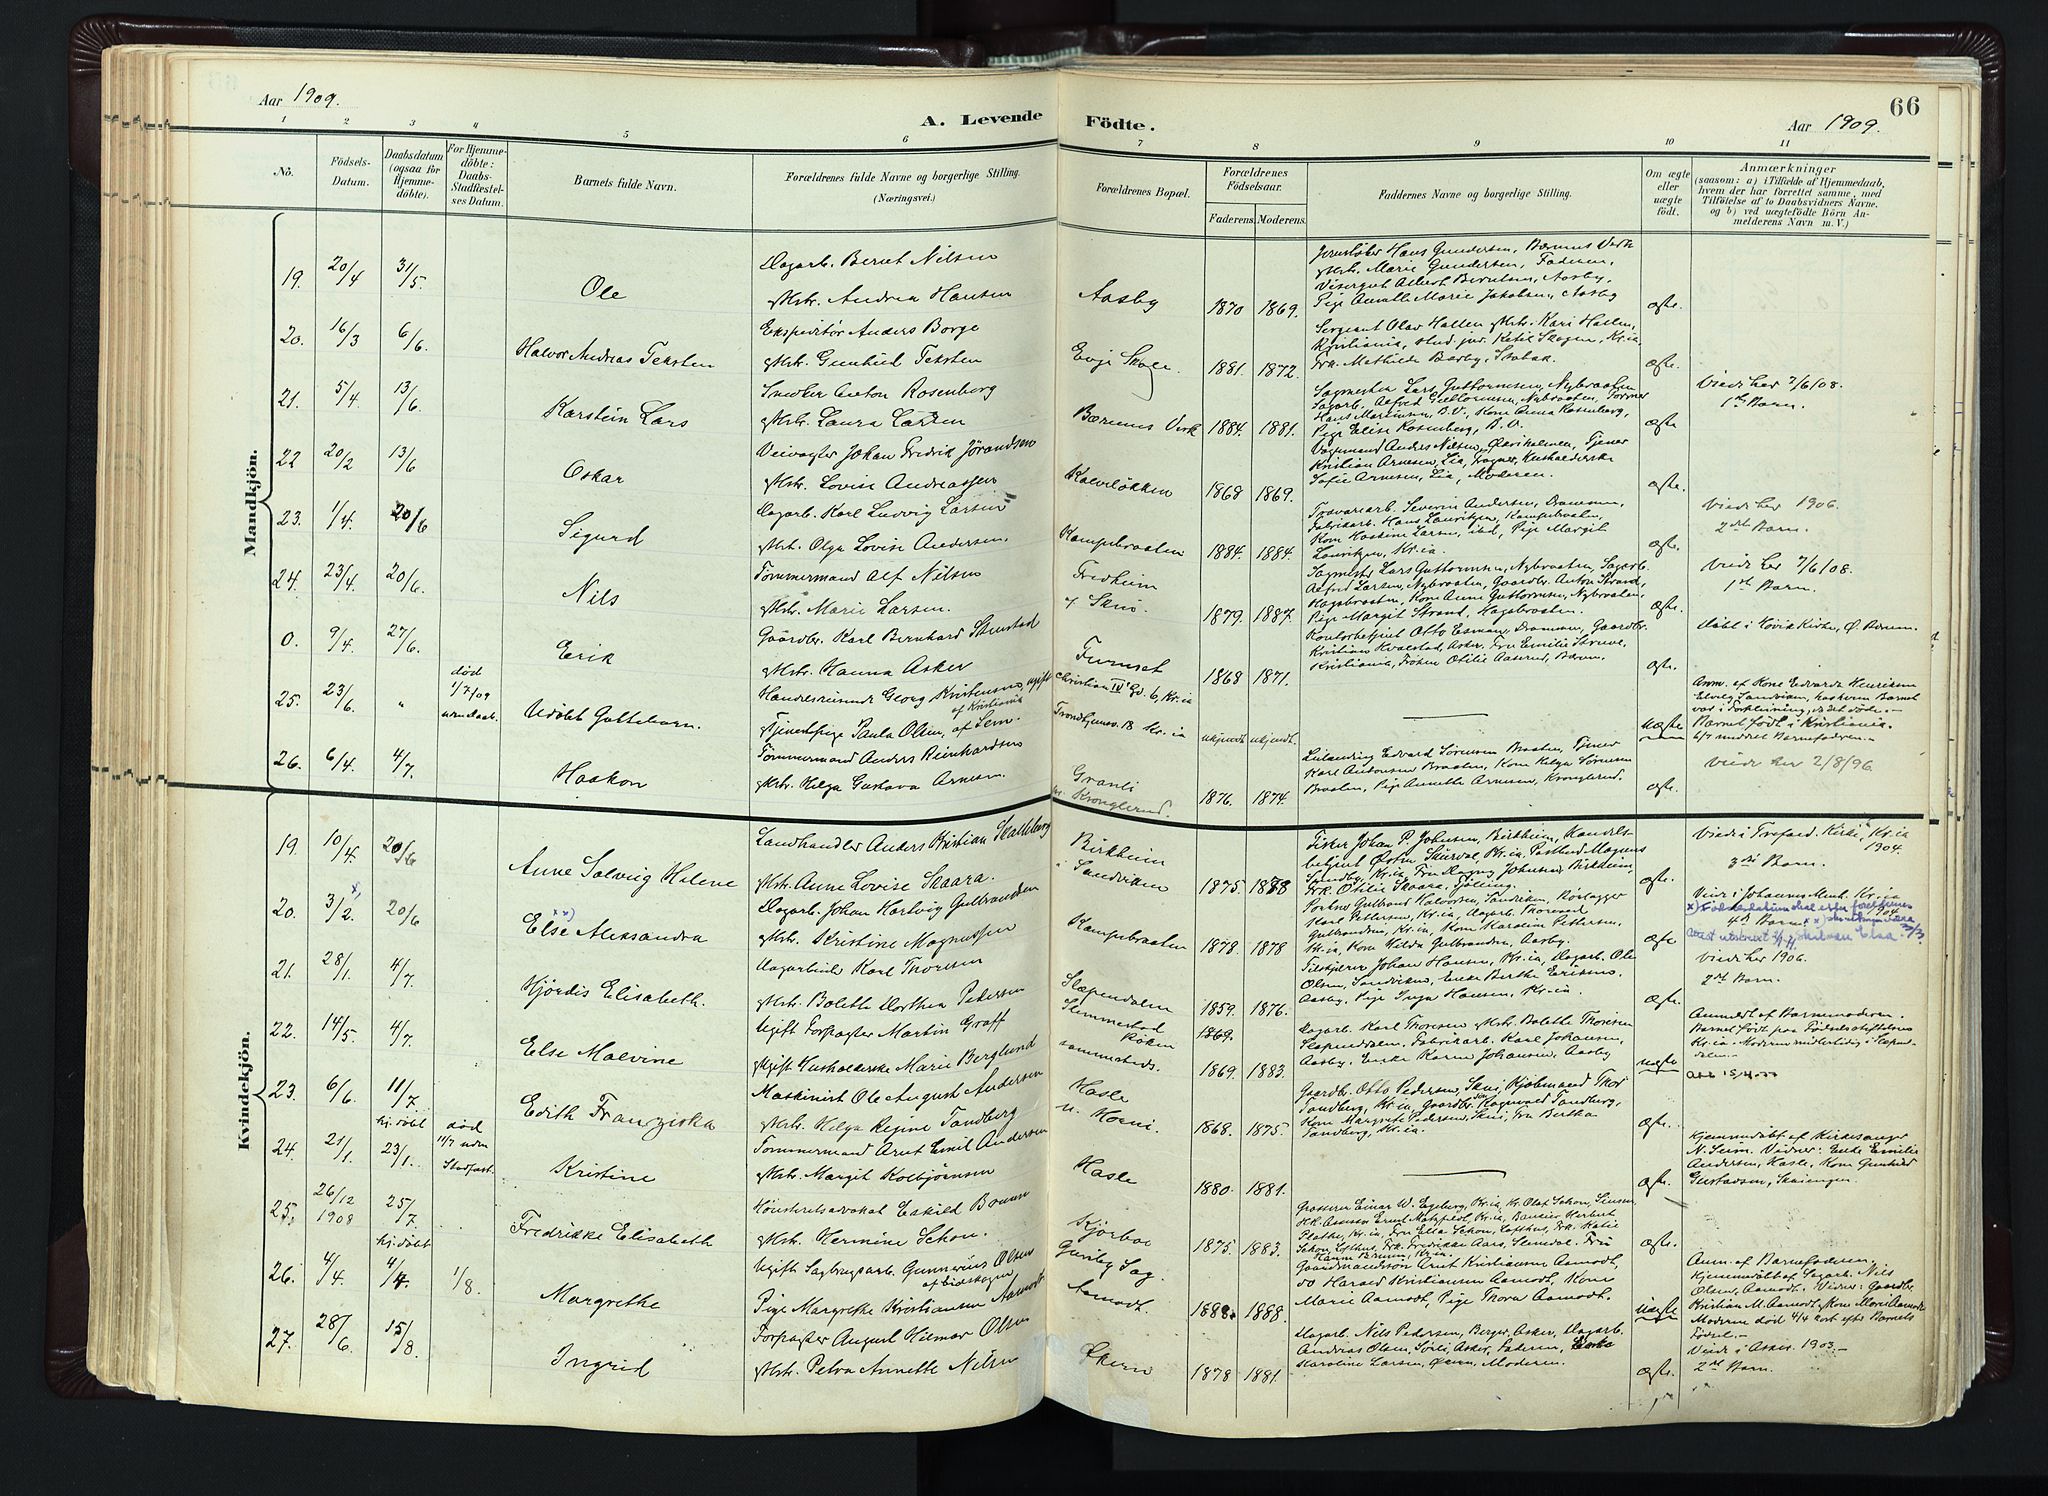 Aar 1909.
A. Levende Födte.
Aar 1909.
66
1 2 3 4 5 6 7 8 9 10 11
No.
Födsels-
Datum.
Daabsdatum
(ogsaa for
Hjemme-
döbte).
For Hjemme-
döbte:
Daabs-
Stadfæstel-
ses Datum.
Barnets fulde Navn.
Forældrenes fulde Navne og borgerlige Stilling.
(Næringsvei.)
Forældrenes Bopæl.
Forældrenes
Födselsaar.
Faderens. Moderens.
Faddernes Navne og borgerlige Stilling.
Om ægte
eller
uægte
födt.
Anmærkninger
(saasom: a) i Tilfælde af Hjemmedaab,
hvem der har forrettet samme, med
Tilföielse af to Daabsvidners Navne,
og b) ved uægtefödte Börn An-
melderens Navn m. V.)
Mandkjön.
19. 20/4 31/5. Ole
Dagarb. Bernt Nilsen
Hstr. Andrea Hansen
Aasby 1870 1869.
Hans Gundersen, Bærums Verk
Hstr. Marie Gundersen, Faderen,
Visergut Albert Berntsen, Aasby,
Pige Amalie Marie Jakobsen, Aasby
ægte.
20. 16/3 6/6. Halvor Andreas Teksten
Ekspeditör Anders Borge
Hstr. Gunhild Teksten
Evje Skole. 1881. 1872.
Sergeant Olav Hallen Hstr. Kari Hallen,
Kristiania, stud. jur. Ketil Skogen, Kr.ia,
Frk. Mathilde Barby, Stabæk.
ægte.
21. 5/4. 13/6 Karstein Lars
Snedker Anton Rosenborg
Hstr. Laura Larsen
Bærums Verk 1884. 1881.
Sagmester Lars Guttormsen, Nybraaten,
Sagarb. Alfred Guttormsen, Nybraaten, Former
Hans Martinsen, B.V., Kone Anna Rosenborg,
Pige Elise Rosenberg, B.V.
ægte
Viede her 7/6/08.
1ste Barn.
22 20/2 13/6 Oskar
Veivogter Johan Fredrik Jörandsen
Hstr. Lovise Andreassen
Kalvelökken 1868 1869.
Vognmand Anders Nilsen, Tjener
Kristian Arnesen, Lia, Husholderske
Sofie Arnesen, Lia, Moderen.
ægte.
23. 1/4. 20/6 Sigurd
Dagarb. Karl Ludvig Larsen
Hstr. Olga Lovise Andersen.
Kampebraaten 1884. 1884.
Severin Andersen, Drammen,
Fabrikarb. Hans Lauritzen, Kampebraaten,
Kone Hansine Larsen, ibid, Pige Margit
Lauritzen, Kr.ia.
ægte.
Viede her 1906.
2det Barn.
24. 23/4. 20/6. Nils
Tömmermand Alf Nilsen
Hstr. Marie Larsen.
Fredheim
Skui. 1879. 1887.
Sagmester Lars Guttormsen, Nybraaten, Sagarb.
Alfred Larsen, Nybraaten, Gaardbr. Anton Strand,
Hagabraaten, Kone Anne Guttormsen, Nybraaten,
Pige Margit Strand, Hagabraaten.
ægte.
Viede her 7/6/08.
1ste Barn.
0. 9/4. 27/6. Erik
Gaardbr. Karl Bernhard Stenstad
Hstr. Hanna Asker
Furuset 1868 1871.
Kontorbetjent Otto Esman, Drammen, Gaardbr.
Kristian Hvalstad, Asker, Fru Emilie Struve,
Kristiania, Fröken Otilie Aaserud, Bærum.
ægte.
Döbt i Hövik Kirke, Ö. Bærum.
25. 23/6. " död
1/7/09
uden daab. Udöbt Guttebarn.
Handelsreisende Georg Kristensen, ugift
af Kristiania
Tjenestepige Paula Olsen, af Sem.
Christian IV Gd. 6, Kr.ia
Trondhjemsv. 13 Kr.ia
ukjendt ukjendt.
uægte
Anm. af Kone Edvarda Henriksen
Elveg. Sandviken, hos hvem Barnet
var i Forpleining, da det döde.
Barnet födt i Kristiania.
6/7 meddelt Barnefaderen.
26. 6/4. 4/7. Haakon
Tömmermand Anders Reinhardsen
Hstr. Helga Gustava Arnesen.
Granli
pr. Kronglerud. 1876. 1874.
Leilending Edvard Sörensen Braaten, Tjener
Karl Antonsen Braaten, Kone Helga Sörensen
Braaten, Pige Annette Arnesen, Kronglerud.
ægte.
Viede her 2/8/96.
Kvindekjön.
19. 10/4. 20/6 Anne Solveig Helene
Landhandler Anders Kristian Skalleberg
Hstr. Anne Lovise Skaara.
Birkheim
i Sandviken 1875. 1878
Fisker Johan P. Johnsen, Birkheim, Handels-
betjent Östen Skurdal, Kr.ia, Postbud Magnus
Sundby, Kr.ia, Fru Ragna Johnsen, Birkheim,
Frk. Otilie Skaara, Tjölling.
ægte.
Viede i Trefold. Kirke, Kr.ia
1904.
3die Barn.
20. 3/2. x) 20/6 Else xx) Aleksandra
Dagarb. Johan Hartvig Gulbrandsen
Hstr. Kristine Magnussen
Kampebraaten 1878. 1878
Portner Gulbrand Halvorsen, Sandviken, Rörlægger
Karl Pettersen, Kr.ia, Dagarb. Thorvald
Gulbrandsen, Kr.ia, Kone Karoline Pettersen,
Kr.ia, Kone Hilda Gulbrandsen, Aasby.
ægte
Viede i Johannes Menh. Kr.ia
1904
4de Barn.
21. 28/1. 4/7. Hjördis Elisabeth.
Dagarbeider Karl Thoresen
Hstr. Bolette Dorthea Pedersen
Slæpendalen 1859. 1876.
Johan Hansen, Kr.ia, Dagarb. Ole
Olsen, Sandviken, Enke Berthe Eriksen,
Aasby, Pige Inga Hansen, Kr.ia.
ægte.
Viede her 1906.
2det Barn.
22. 14/5. 4/7. Else Malvine
Ugift Forpagter Martin Graff
Ugift Husholderske Marie Berglund
Slemmestad
Röken
sammesteds. 1869. 1869. 1883.
Dagarb. Karl Thoresen Hstr. Bolette Thoresen
Slæpendalen, Fabrikarb. Karl Johansen,
Aasby, Enke Karen Johansen, Aasby
uægte
Anmeldt af Barnemoderen.
Barnet födt paa Födselsstiftelsen
Kr.ia. Moderen midlertidig i Slæpen-
dalen.
23. 6/6. 11/7 Edith Franziska
Maskinist Ole August Andersen
Hstr. Helga Regine Tandberg
Hasle
u. Horni. 1868. 1875.
Gaardbr. Otto Pedersen, Skui, Kjöbmand Thor
Tandberg, Kr.ia, Gaardbr. Ragnvald Tandberg,
Kone Margrete Pedersen, Skui, Fru Bertha
Tandberg, Kr.ia.
ægte.
24. 21/1. hj. döbt
23/1. död
11/7 uden
Stadfæst. Kristine
Tömmermand Arnt Emil Andersen
Hstr. Margit Kolbjörnsen
Hasle 1880. 1881.
ægte.
Hjemmedöbt af Kirkesanger
N. Seim. Vidner: Enke Emilie
Andersen, Hasle, Kone Gunhild
Gustavsen, Skaiengen.
25. 26/12
1908 25/7. Fredrikke Elisabeth
Höiesteretsadvokat Eskild Bruun
Hstr. Hermine Schou.
Kjörbo 1875. 1883.
Grosserer Einar W. Egeberg, Kr.ia, Kr. Olaf Schou,
Assessor Ernst Motzfeldt, Kr.ia, Bankier Herbert
Plathe, Kr.ia, Fru Ella Schou, Lofthus, Frk. Katie
Schou, Lofthus, Frk. Fredrikke Aars, Slemdal. Fru
Bruun, Kr.ia.
ægte.
26. 4/4. hj. döbt
4/4. 1/8. Margrethe
Ugift Sagbrugsarb. Gunnerius Olsen
af Eidskogen
Pige Margrethe Kristiansen Aamodt.
Gunby Sag.
Aamodt. 1888. 1888.
Gaardmandssön Arnt Kristiansen Aamodt,
do Harald Kristiansen Aamodt, Kone
Marie Aamodt, Pige Thora Aamodt.
uægte
Anm. af Barnefaderen.
Hjemmedöbt af Sagarb. Nils
Olsen, Aamodt. Vidner: Gaardbr.
Kristian M. Aamodt, Kone Marie Aamodt
Moderen död 4/4 kort efter Barnets
Födsel.
27. 28/6. 15/8. Ingrid
Forpagter August Hilmar Olsen
Hstr. Petra Annette Nilsen
Ökern 1878 1881.
Dagarb. Nils Pedersen, Berger, Asker, Dagarb.
Andreas Olsen, Solli, Asker, Faderen,
Karoline Larsen, Moderen.
ægte.
Viede i Asker 1903.
2det Barn.